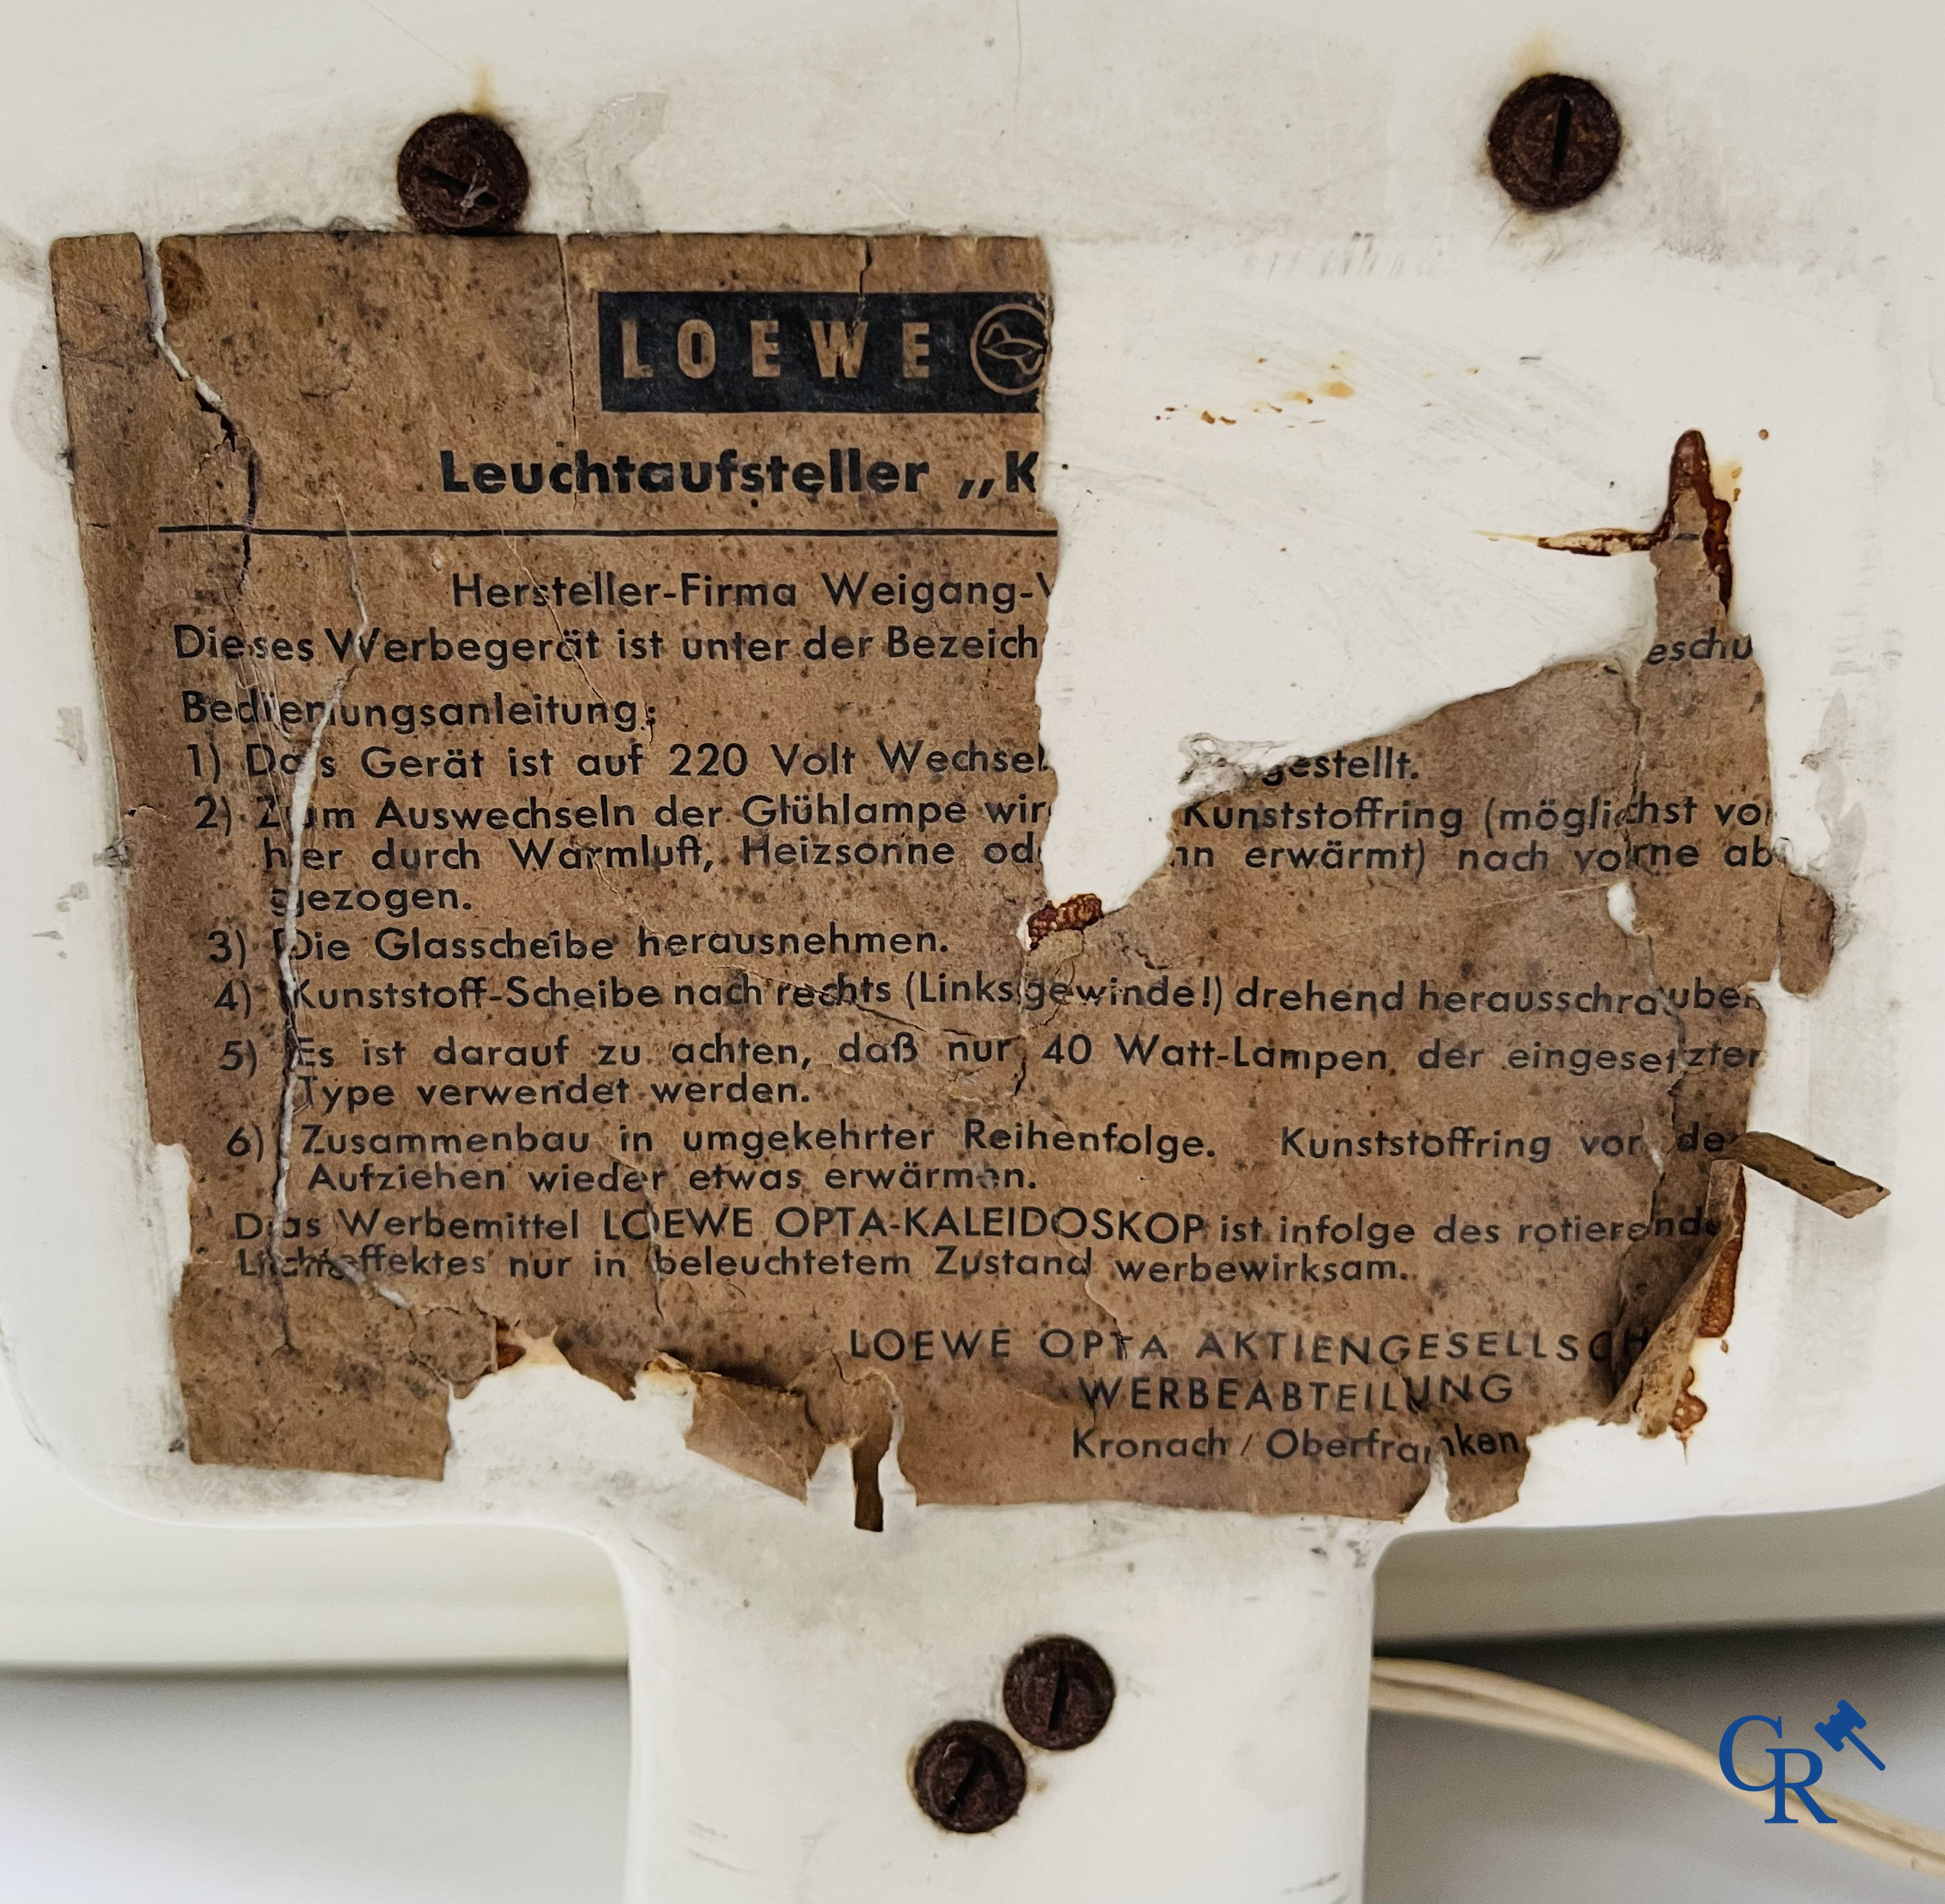 LOEWE
Leuchtaufsteller „K
Hersteller-Firma Weigang-
Dieses Werbegerät ist unter der Bezeich eschu
Bedienungsanleitung:
1) Das Gerät ist auf 220 Volt Wechsel gestellt.
2) Zum Auswechseln der Glühlampe wir Kunststoffring (möglichst vor
hier durch Warmluft, Heizsonne od nn erwärmt) nach vorne ab
gezogen.
3) Die Glasscheibe herausnehmen.
4) Kunststoff-Scheibe nach rechts (Linksgewinde!) drehend herausschrauben
5) Es ist darauf zu achten, daß nur 40 Watt-Lampen der eingesetzten
Type verwendet werden.
6) Zusammenbau in umgekehrter Reihenfolge. Kunststoffring vor de
Aufziehen wieder etwas erwärmen.
Das Werbemittel LOEWE OPTA-KALEIDOSKOP ist infolge des rotierende
Lichteffektes nur in beleuchtetem Zustand werbewirksam.
LOEWE OPTA AKTIENGESELLSCH
WERBEABTEILUNG
Kronach / Oberfranken
CR